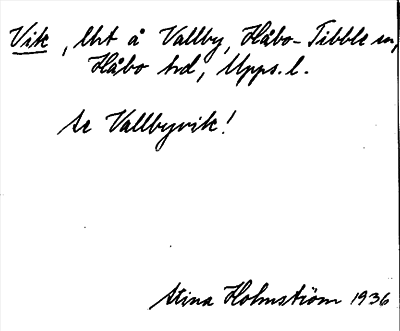 Vik, lht å Vallby, Håbo-Tibble sn,
Håbo hd, Upps. l.
Se Vallbyvik!
Stina Holmström 1936